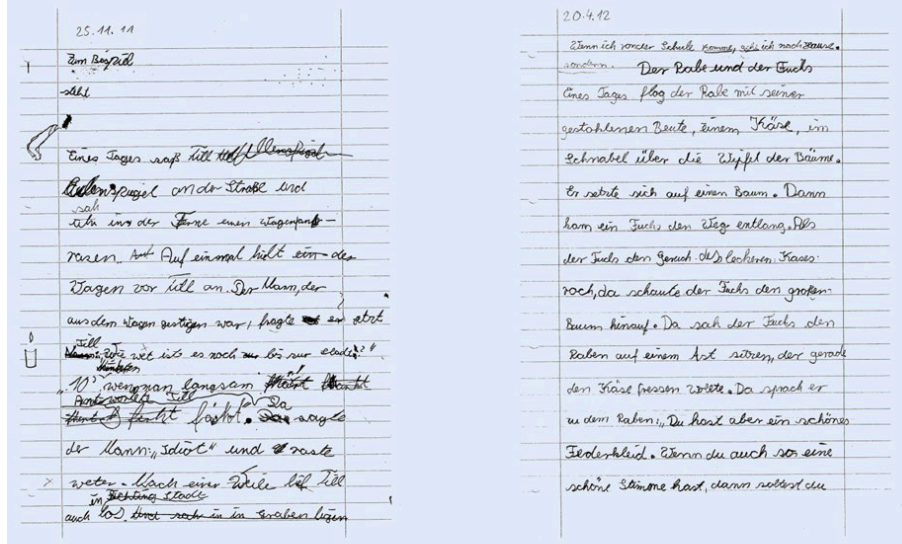 25.11.11
Zum Beispiel
steht
Eines Tages saß Till
Eulenspiegel an der Straße und
sah
in der Ferne einen Wagen
rasen. Auf einmal hielt ein der
Wagen vor Till an. Der Mann, der
aus dem Wagen gestigen war, fragte er etzt
Till
Wie wet ist es noch bis zur stadt?"
"10 wenn man langsam
Antwortete Till
fährt". Da sagte
der Mann: "Idiot" und raste
weter. Nach einer Weile lif Till
in Richtung Stadt
auch los. in Graben ligen
20.4.12
Wenn ich von der Schule komme, geht ich nach Hause.
sondern.
Der Rabe und der Fuchs
Eines Tages flog der Rabe mit seiner
gestohlenen Beute, einem Käse, im
Schnabel über die Wipfel der Bäume.
Er setzte sich auf einen Baum. Dann
kam ein Fuchs den Weg entlang. Als
der Fuchs den Geruch des leckeren Käses
roch, da schaute der Fuchs den großen
Baum hinauf. Da sah der Fuchs den
Raben auf einem Ast sitzen, der gerade
den Käse fressen wolte. Da sprach er
zu dem Raben: "Du hast aber ein schönes
Federkleid. Wenn du auch so eine
schöne Stimme hast, dann soltest du